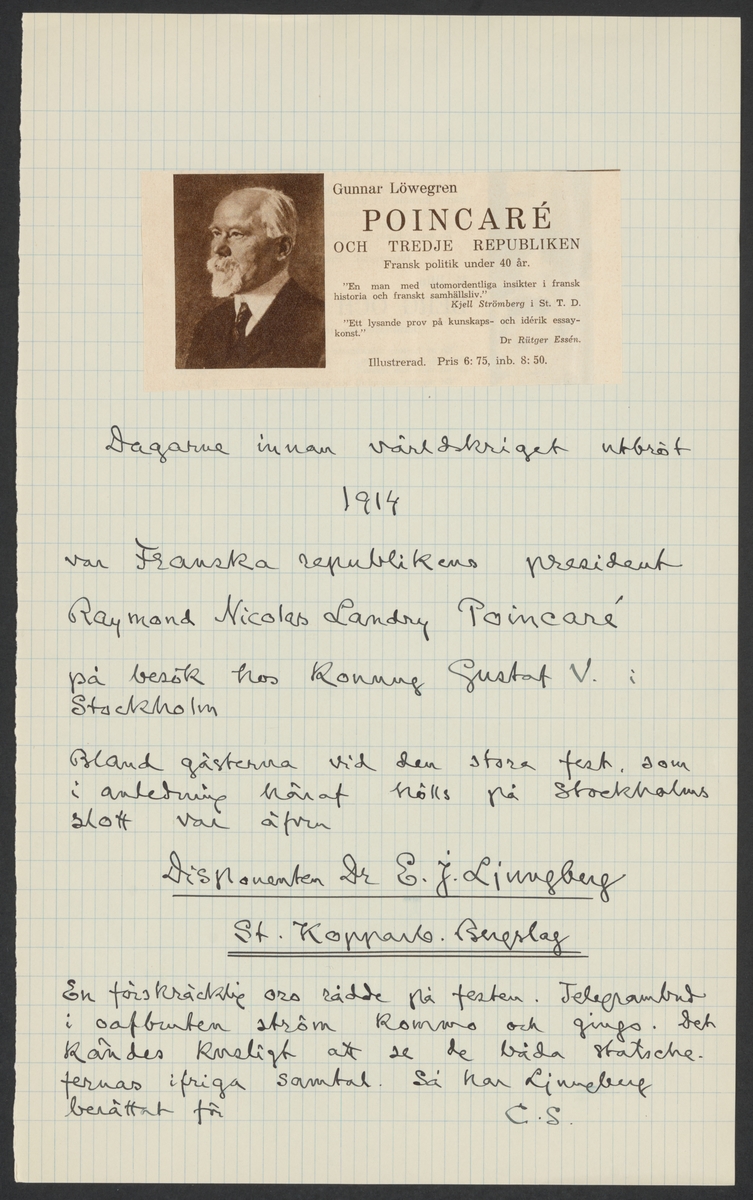 Gunnar Löwegren
POINCARÉ
OCH TREDJE REPUBLIKEN
Fransk politik under 40 år.
"En man med utomordentliga insikter i fransk
historia och franskt samhällsliv."
Kjell Strömberg i St. T. D.
"Ett lysande prov på kunskaps- och idérik essay-
konst."
Dr Rütger Essén.
Illustrerad. Pris 6: 75, inb. 8: 50.
Dagarne innan världskriget utbröt
1914
var Franska republikens president
Raymond Nicolas Landry Poincaré
på besök hos Konung Gustaf V. i
Stockholm
Bland gästerna vid den stora fest, som
i anledning häraf hölls på Stockholms
slott var äfven
Disponenten Dr E. J. Ljungberg
St. Kopparb. Bergslag
En förskräcklig oro rådde på festen. Telegrambud
i oafbruten ström kommo och gingo. Det
kändes kusligt att se de båda statsche-
fernas ifriga samtal. Så har Ljungberg
berättat för
C.S.